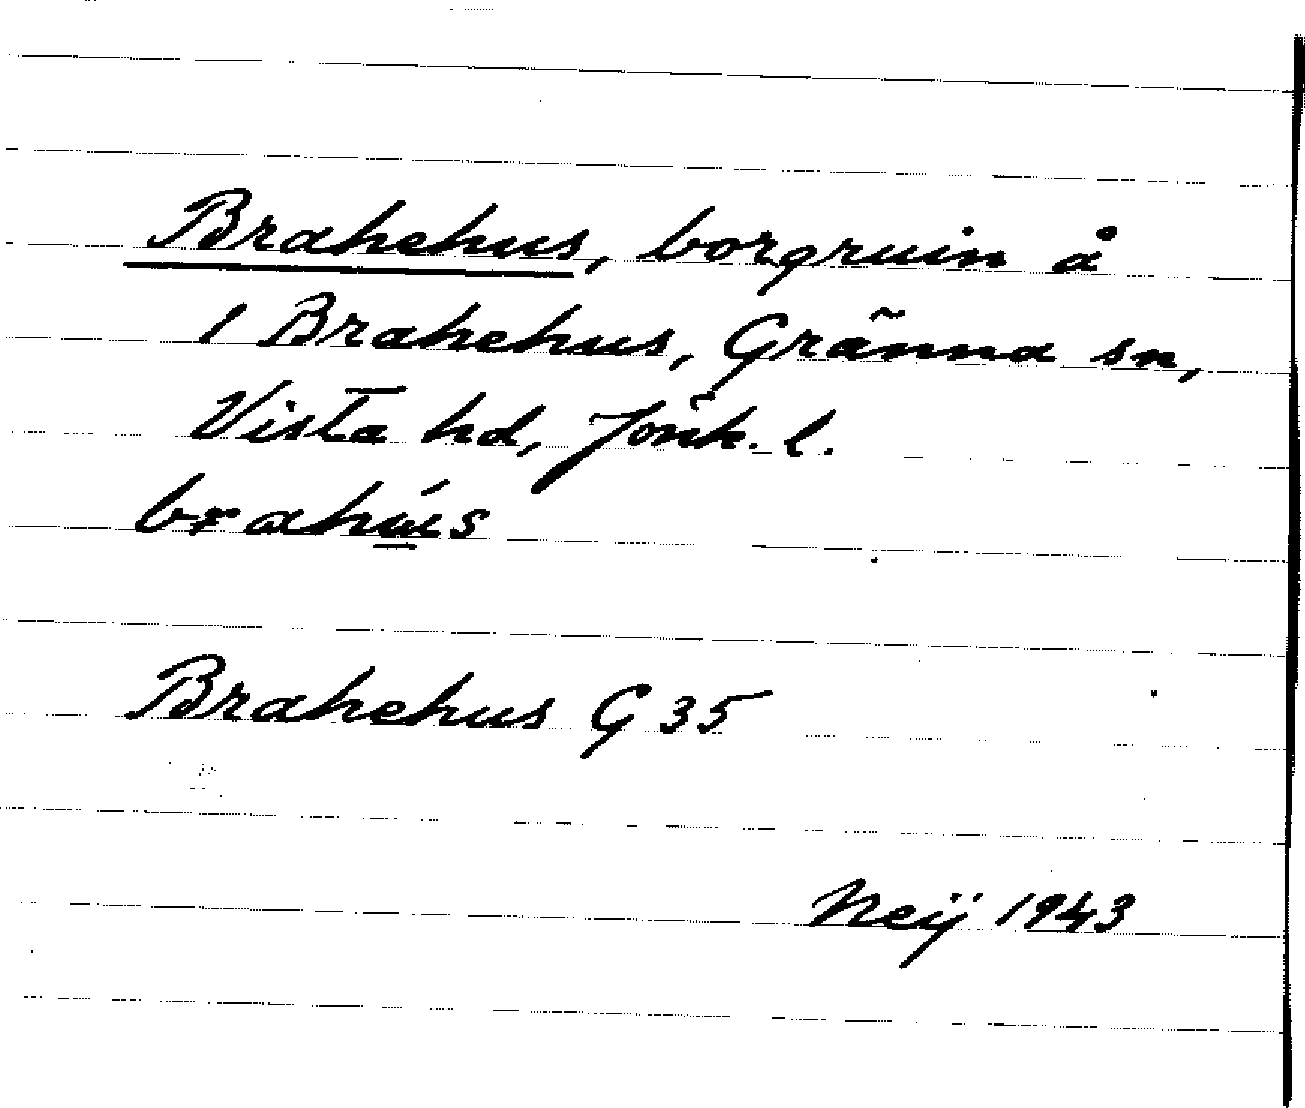 Brahehus, borgruin å
1 Brahehus, Gränna sn,
Vista hd, Jönk. l.
brahús
Brahehus G 35
Neij 1943